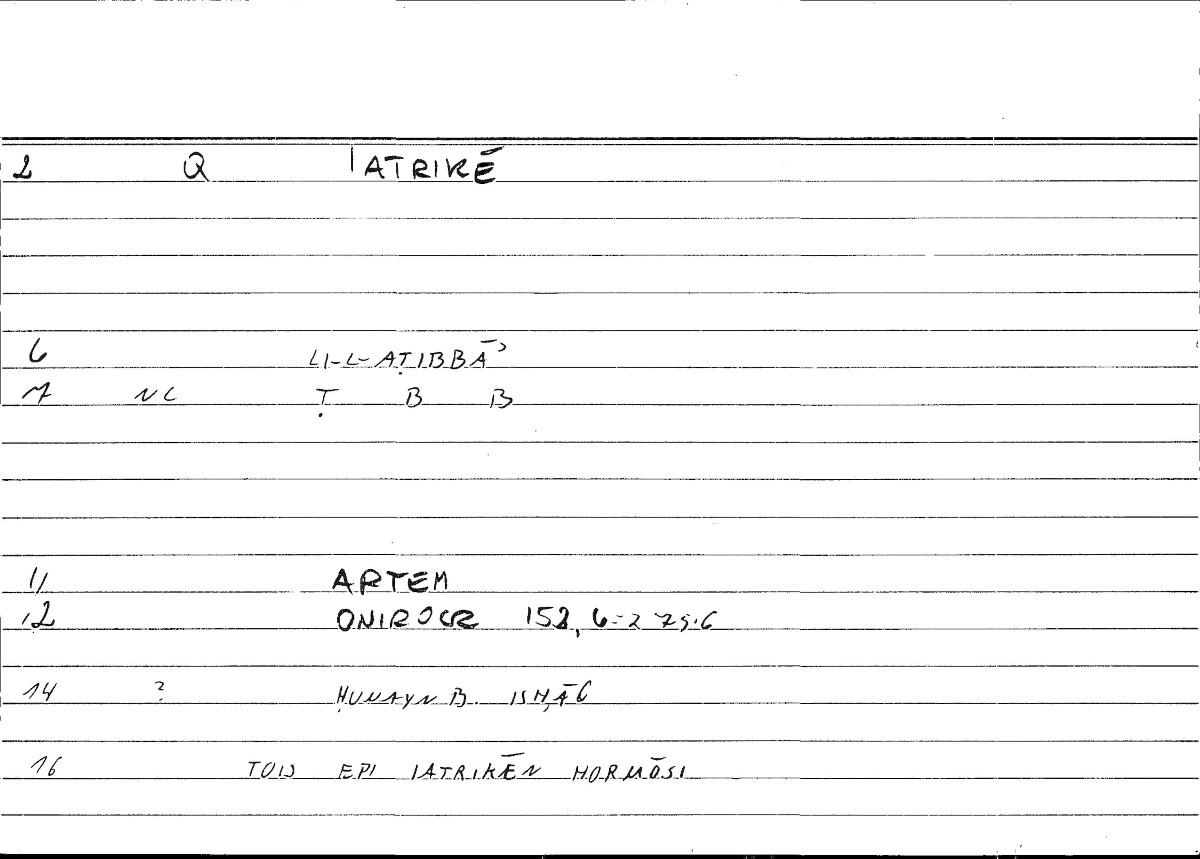 2 Q IATRIKĒ
6 LI-L-AṬIBBĀʾ
7 NC Ṭ B B
11 ARTEM
12 ONIROCR 152, 6 = 275.6
14 ? ḤUNAYN B. ISḤĀ
16 TOIS EPI IATRIKĒN HORMŌSI